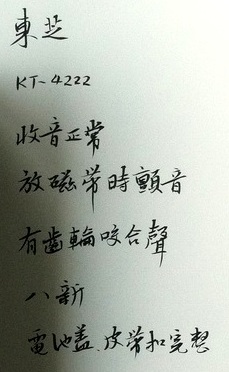 東芝
KT-4222
收音正常
放磁帶時顫音
有齒輪咬合聲
八新
電池盖、皮带扣完整